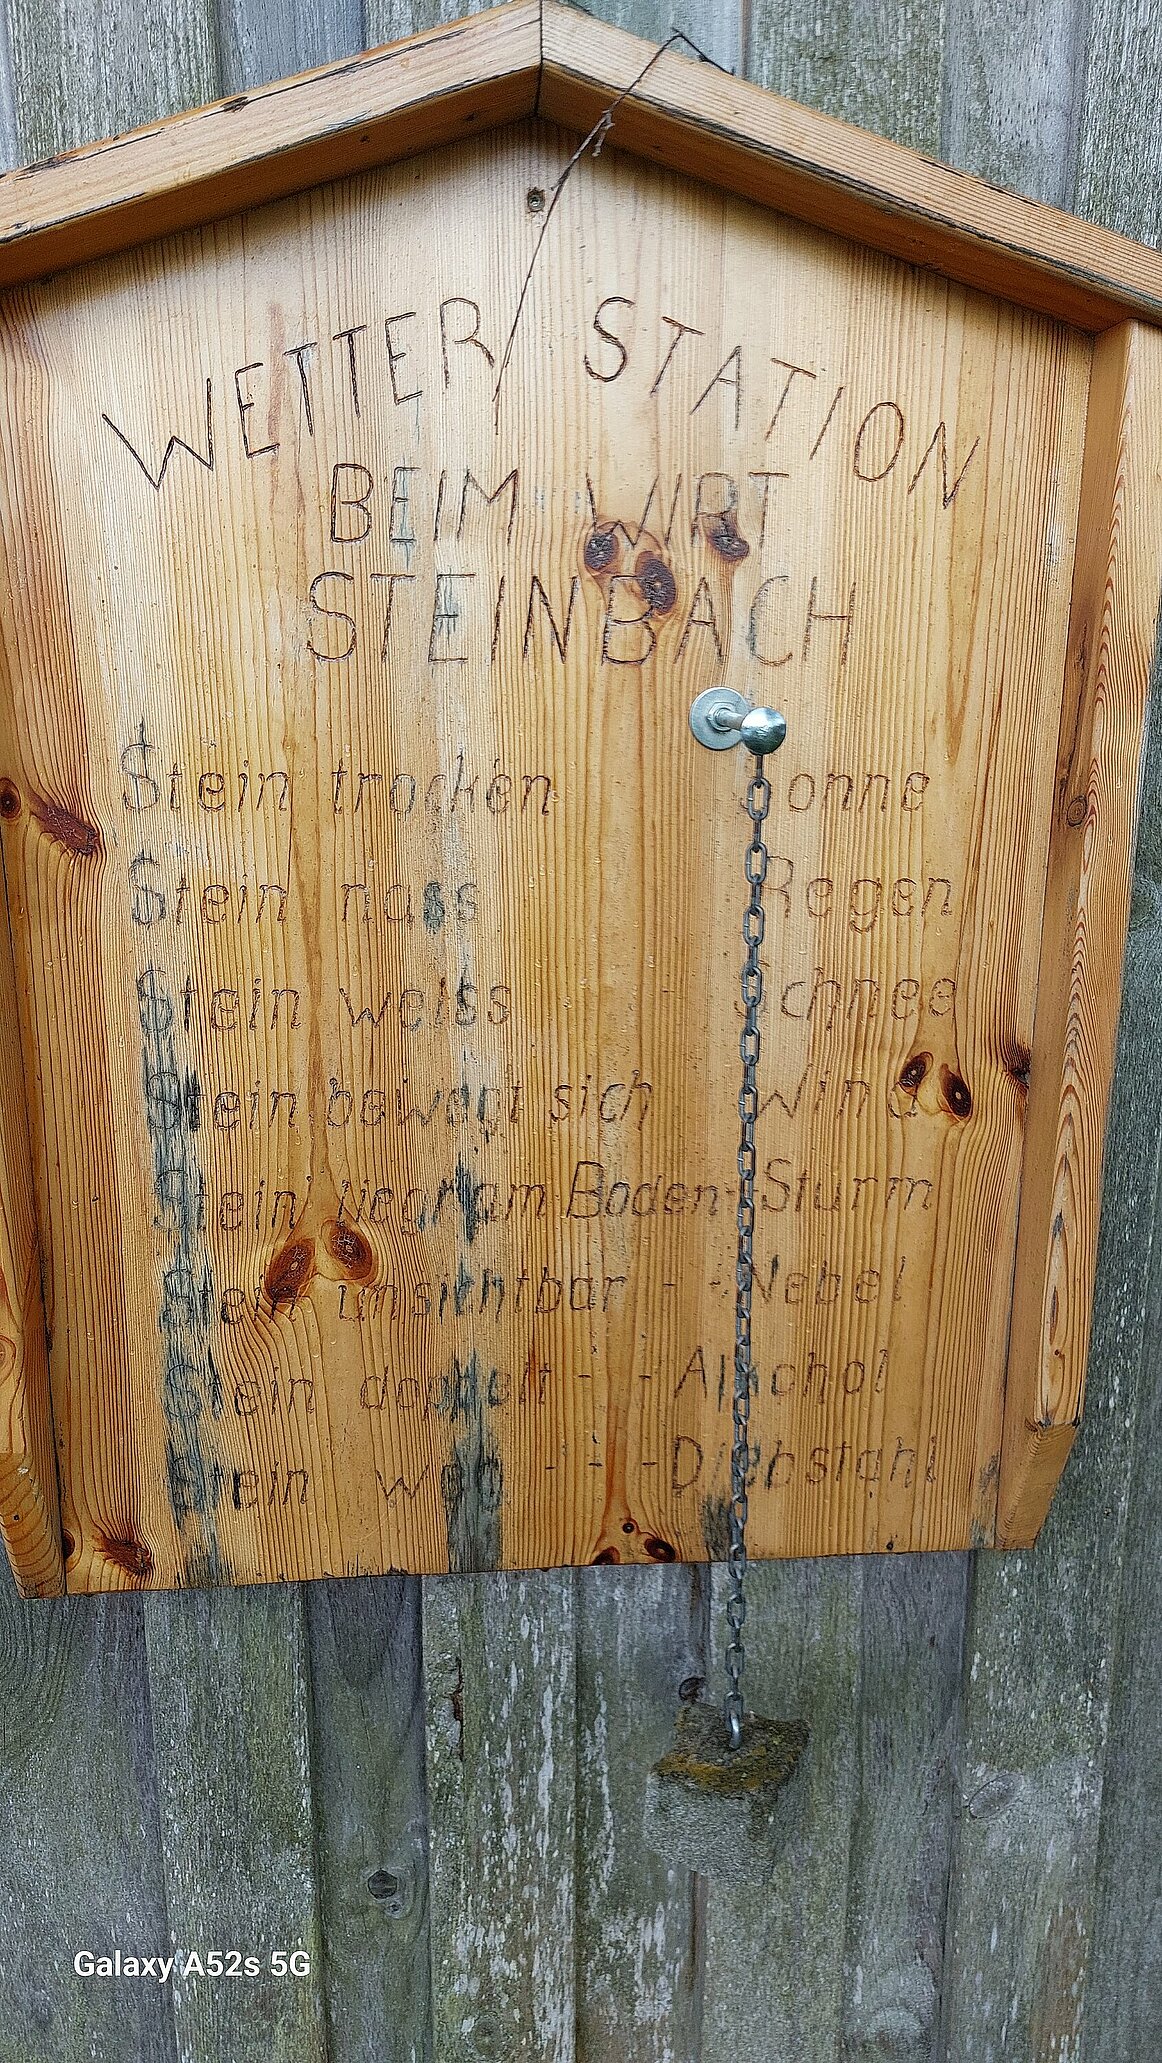 WETTER STATION
BEIM WIRT
STEINBACH
Stein trocken Sonne
Stein nass Regen
Stein weiss Schnee
Stein bewegt sich Wind
Stein liegt am Boden - Sturm
Stein unsichtbar - - Nebel
Stein doppelt - - Alkohol
Stein weg - - - Diebstahl
Galaxy A52s 5G